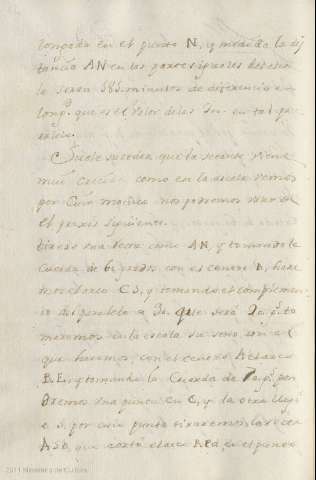 longada en el punto N, y medida la dis
tancia AN en las partes iguales de esca
la seran 565. minutos de diferencia en
long. que es el valor de las en tal pa
ralelo.
Suele suceder que la secante viene
mui crecida como en la escala vemos
por cuio motibo nos podremos usar de
el praxis siguiente.
tirese una recta como AN, y tomando la
cuerda de 60 grados con el centro hare
mos el arco C S, y tomando el complemen
io del paralelo a que será to
maremos en la escala su seno con el
que haremos con el centro A el arco
B. E, y tomando la Cuerda de pon
dremos una punta en C, y la otra lleg.
a S. por cuio punto tiraremos la recta
ASD, que corta el arco en el punto
2011 Ministerio de Cultura